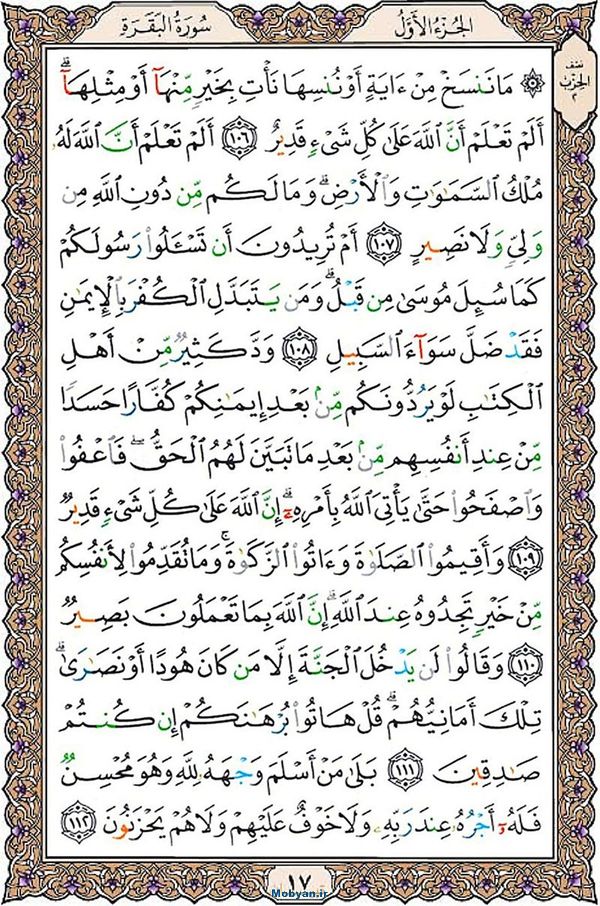 سُورَةُ البَقَرَةِ
الجُزءُ الأَوَّلُ
نصف
الحزب
٢
۞ مَا نَنسَخۡ مِنۡ ءَايَةٍ أَوۡ نُنسِهَا نَأۡتِ بِخَيۡرٖ مِّنۡهَآ أَوۡ مِثۡلِهَآۗ
أَلَمۡ تَعۡلَمۡ أَنَّ ٱللَّهَ عَلَىٰ كُلِّ شَيۡءٖ قَدِيرٌ ١٠٦ أَلَمۡ تَعۡلَمۡ أَنَّ ٱللَّهَ لَهُۥ
مُلۡكُ ٱلسَّمَٰوَٰتِ وَٱلۡأَرۡضِۗ وَمَا لَكُم مِّن دُونِ ٱللَّهِ مِن
وَلِيّٖ وَلَا نَصِيرٍ ١٠٧ أَمۡ تُرِيدُونَ أَن تَسۡـَٔلُواْ رَسُولَكُمۡ
كَمَا سُئِلَ مُوسَىٰ مِن قَبۡلُۗ وَمَن يَتَبَدَّلِ ٱلۡكُفۡرَ بِٱلۡإِيمَٰنِ
فَقَدۡ ضَلَّ سَوَآءَ ٱلسَّبِيلِ ١٠٨ وَدَّ كَثِيرٞ مِّنۡ أَهۡلِ
ٱلۡكِتَٰبِ لَوۡ يَرُدُّونَكُم مِّنۢ بَعۡدِ إِيمَٰنِكُمۡ كُفَّارًا حَسَدٗا
مِّنۡ عِندِ أَنفُسِهِم مِّنۢ بَعۡدِ مَا تَبَيَّنَ لَهُمُ ٱلۡحَقُّۖ فَٱعۡفُواْ
وَٱصۡفَحُواْ حَتَّىٰ يَأۡتِيَ ٱللَّهُ بِأَمۡرِهِۦٓۗ إِنَّ ٱللَّهَ عَلَىٰ كُلِّ شَيۡءٖ قَدِيرٞ
١٠٩ وَأَقِيمُواْ ٱلصَّلَوٰةَ وَءَاتُواْ ٱلزَّكَوٰةَۚ وَمَا تُقَدِّمُواْ لِأَنفُسِكُم
مِّنۡ خَيۡرٖ تَجِدُوهُ عِندَ ٱللَّهِۗ إِنَّ ٱللَّهَ بِمَا تَعۡمَلُونَ بَصِيرٞ
١١٠ وَقَالُواْ لَن يَدۡخُلَ ٱلۡجَنَّةَ إِلَّا مَن كَانَ هُودًا أَوۡ نَصَٰرَىٰۗ
تِلۡكَ أَمَانِيُّهُمۡۗ قُلۡ هَاتُواْ بُرۡهَٰنَكُمۡ إِن كُنتُمۡ
صَٰدِقِينَ ١١١ بَلَىٰ مَنۡ أَسۡلَمَ وَجۡهَهُۥ لِلَّهِ وَهُوَ مُحۡسِنٞ
فَلَهُۥٓ أَجۡرُهُۥ عِندَ رَبِّهِۦ وَلَا خَوۡفٌ عَلَيۡهِمۡ وَلَا هُمۡ يَحۡزَنُونَ ١١٢
١٧
Mobyan.ir